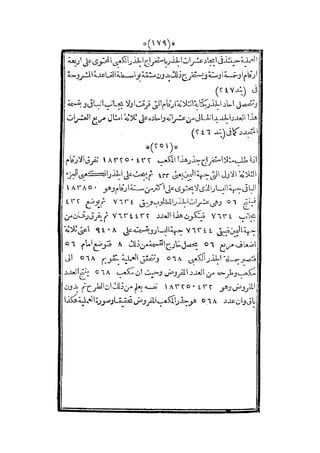 *(١٧٩)*
العملية حينئذ في ايجاد عشرات الجذر باستخراج الجذر الكعبي المحتوي على اربعة
ارقام او خمسة او ستة ويستخرج ذلك بدون مشقة بواسطة القاعدة المشروحة
في (بند ٢٤٧)
وتتحصل احاد الجذر بكتابة الثلاثة ارقام التي فرقت اولا بجانب الباقي وبقسمة
هذا العدد الجديد الخالي من عشراته واحاده على ثلاثة امثال مربع العشرات
المتجدد كما في (بند ٢٤٦)
*(٢٥١)*
اذا طلب مثلا استخراج جذر هذا المكعب ١٨٣٢٥٠٤٣٢ تفرق الارقام
الثلاثة الاول التي جهة اليمين يعني ٤٣٢ ثم يبحث على الجذر الكعبي للجزء
الباقي جهة اليسار الذي لا يحتوي على اكثر من ستة ارقام وهو ١٨٣٢٥٠
فينتج ٥٦ وهي عشرات الجذر المطلوب ويبقى ٧٦٣٤ ثم يوضع ٤٣٢
بجانب ٧٦٣٤ فيتكون هذا العدد ٧٦٣٤٤٣٢ ثم يفرق رقمان من
جهة اليمين فيبقى ٧٦٣٤٤ جهة اليسار وبقسمته على ٩٤٠٨ اعني ثلاثة
اضعاف مربع ٥٦ يحصل خارج القسمة من ذلك ٨ فتوضع امام ٥٦
فتصير جملة الجذر الكعبي ٥٦٨ وتتحقق العملية بتقويم ٥٦٨ الى
مكعب وطرحه من العدد المفروض وحيث ان مكعب ٥٦٨ ينتج العدد
المفروض وهو ١٨٣٢٥٠٤٣٢ نفسه يعلم من ذلك ان الطرح تم بدون
باق وان عدد ٥٦٨ هو جذر المكعب المفروض تحقيقا وصورة العملية هكذا